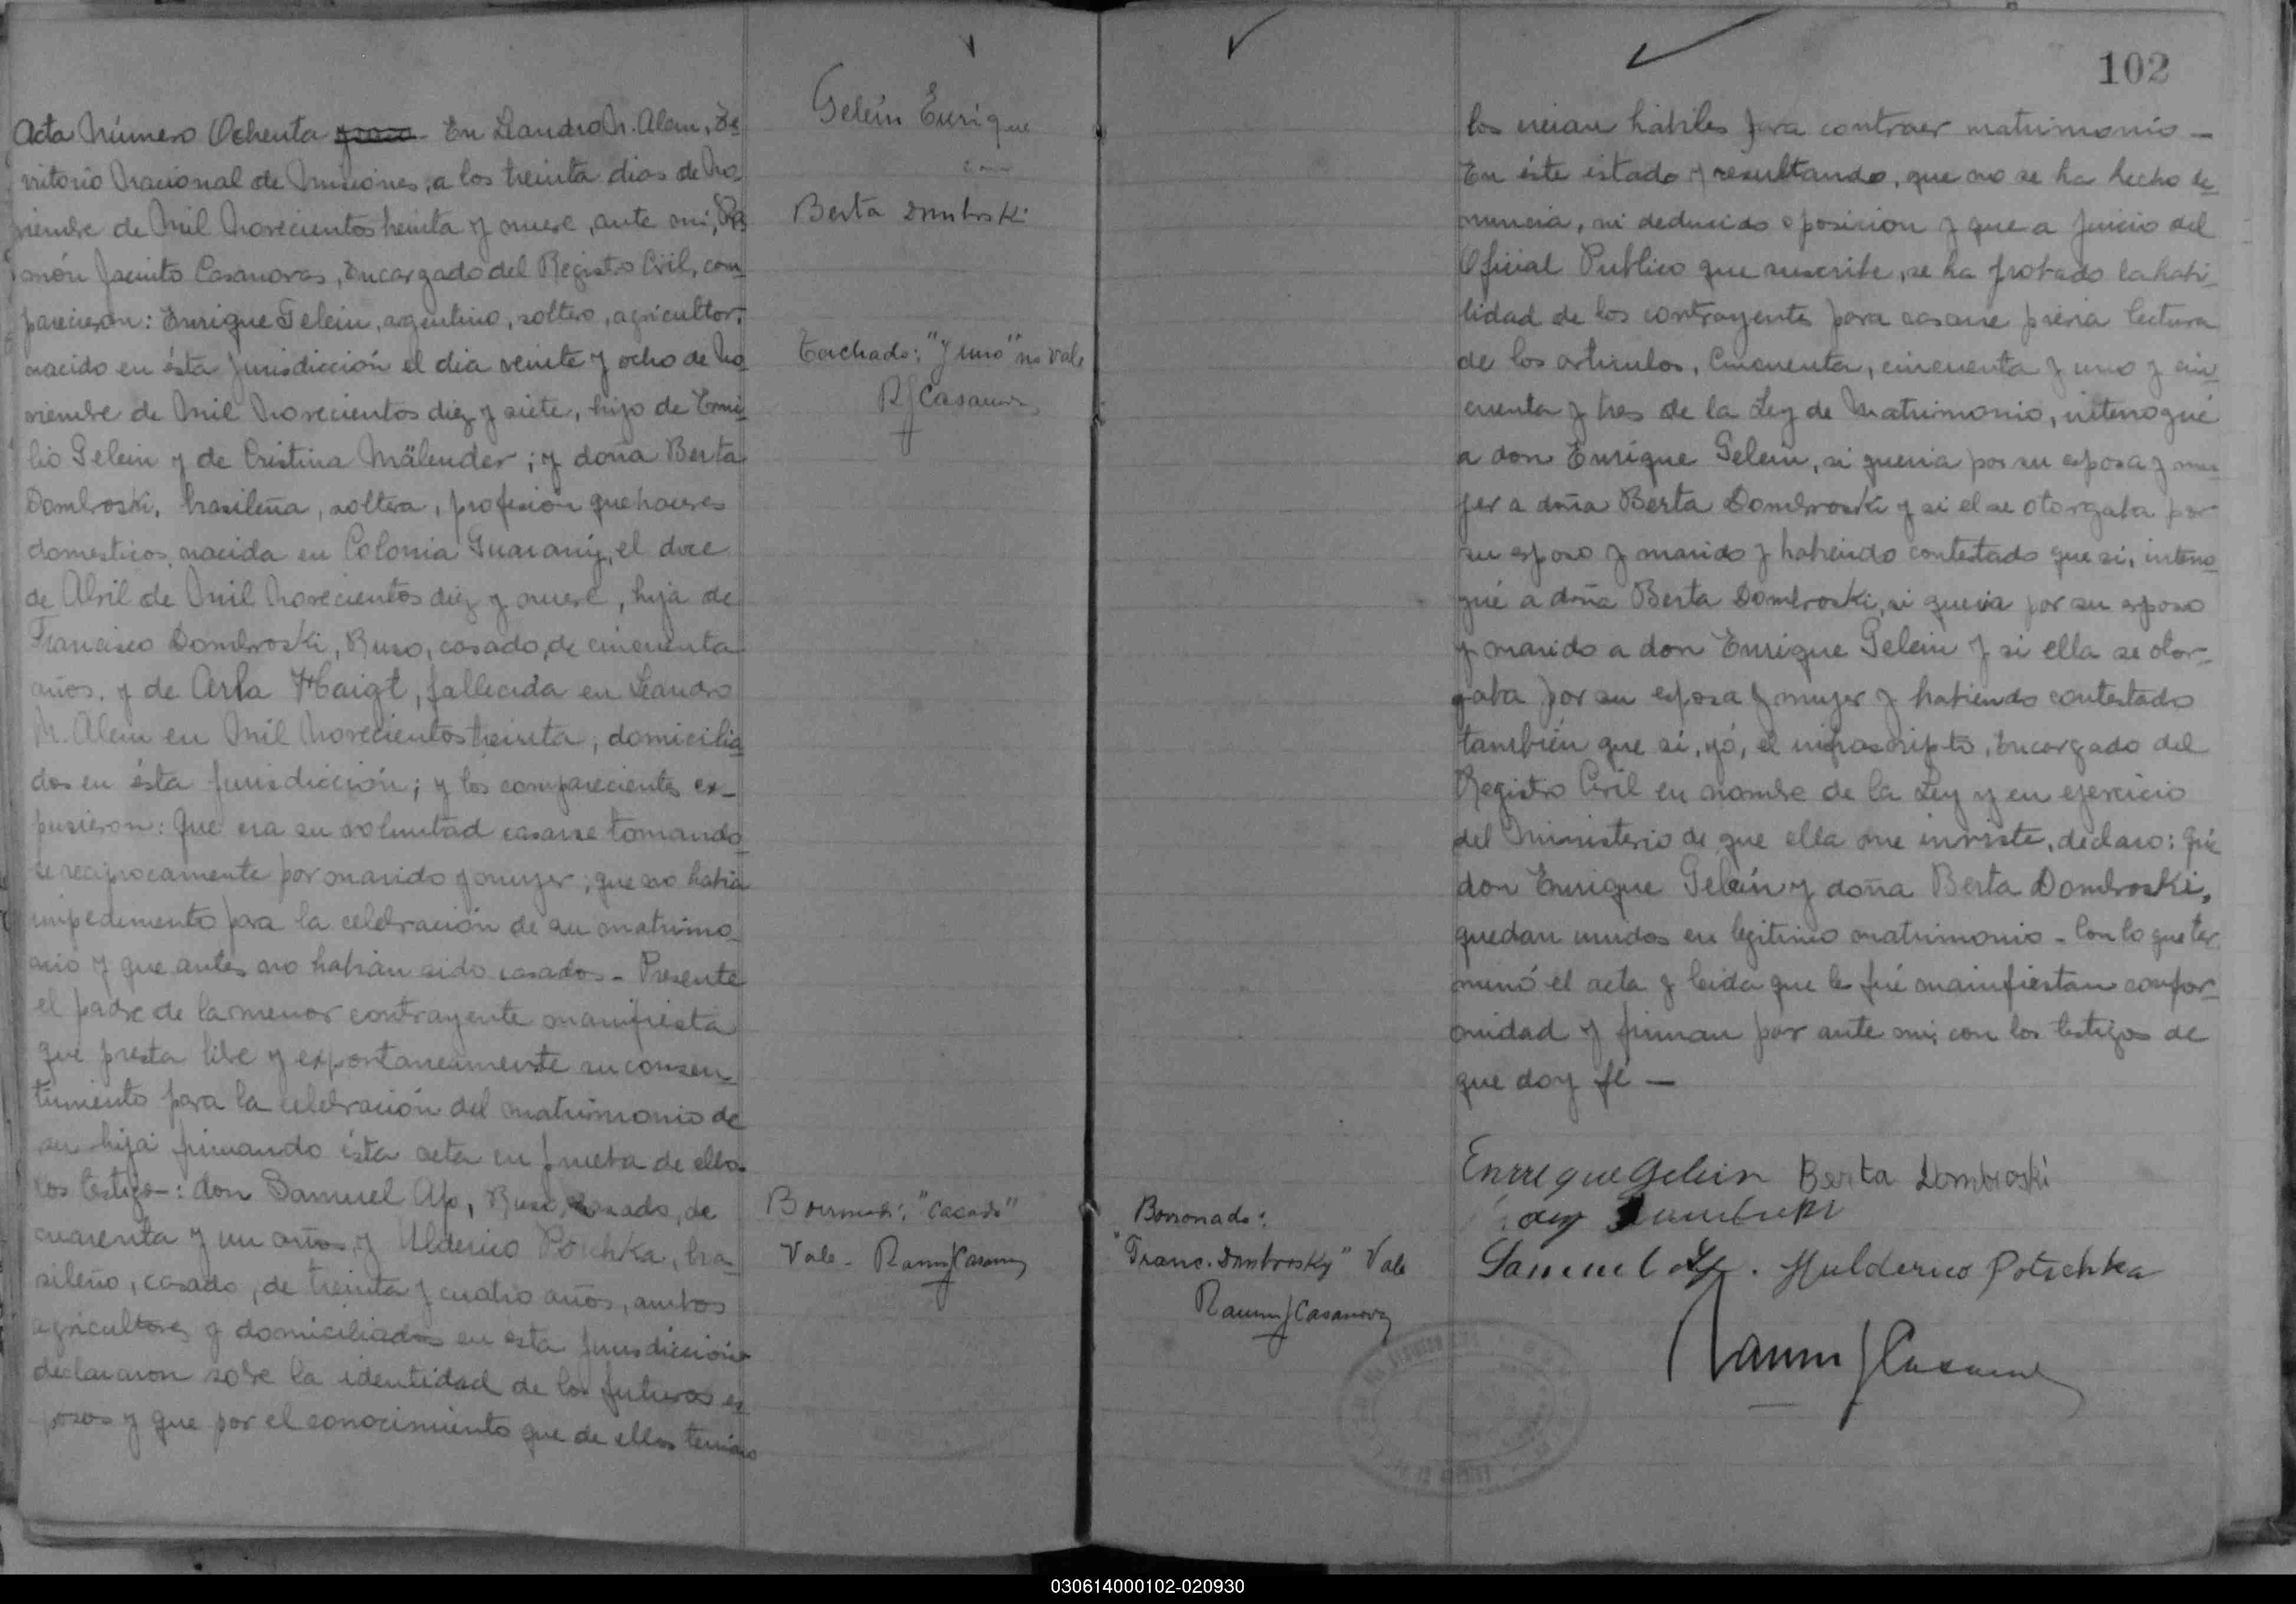 Acta Número Ochenta y uno - En Leandro N. Alem, Te_
rritorio Nacional de Misiones, a los treinta dias de No_
viembre de Mil Novecientos treinta y nueve, ante mi, Ra_
món Jacinto Casanovas, Encargado del Registro Civil, com_
parecieron: Enrique Gelein, argentino, soltero, agricultor,
nacido en ésta Jurisdicción el dia veinte y ocho de No_
viembre de Mil Novecientos diez y siete, hijo de Emi_
lio Gelein y de Cristina Mälender; y doña Berta
Dombroski, brasileña, soltera, profesión quehaceres
domesticos, nacida en Colonia Guarany, el doce
de Abril de Mil Novecientos diez y nueve, hija de
Francisco Dombroski, Ruso, casado, de cincuenta
años, y de Arla Haigt, fallecida en Leandro
N. Alem en Mil Novecientos treinta, domicilia_
dos en ésta Jurisdicción; y los comparecientes ex_
pusieron: Que era su voluntad casarse tomando_
se reciprocamente por marido y mujer; que no habia
impedimento para la celebración de su matrimo_
nio y que antes no habian sido casados - Presente
el padre de la menor contrayente manifiesta
que presta libre y expontaneamente su consen_
timiento para la celebración del matrimonio de
su hija firmando ésta acta en prueba de ello.
Los testigos: don Samuel Ap, Ruso, casado, de
cuarenta y un años, y Ulderico Pöschka, bra_
sileño, casado, de treinta y cuatro años, ambos
agricultores y domiciliados en esta Jurisdicción
declararon sobre la identidad de los futuros es_
posos y que por el conocimiento que de ellos tenian
Gelein Enrique
con
Berta Dombroski
Tachado: "y uno" no vale
R J Casanova
Borronado: "Casado"
Vale - Ramón J Casanova
Borronado:
"Franc. Dombrosky" Vale
Ramón J Casanova
102
los creian habiles para contraer matrimonio -
En éste estado y resultando, que no se ha hecho de_
nuncia, ni deducido oposicion y que a Juicio del
Oficial Publico que suscribe, se ha probado la habi_
lidad de los contrayentes para casarse previa lectura
de los articulos, Cincuenta, cincuenta y uno y cin_
cuenta y tres de la Ley de Matrimonio, interrogué
a don Enrique Gelein, si queria por su esposa y mu_
jer a doña Berta Dombroski y si el se otorgaba por
su esposo y marido y habiendo contestado que si, interro_
gué a doña Berta Dombroski, si queria por su esposo
y marido a don Enrique Gelein y si ella se otor_
gaba por su esposa y mujer y habiendo contestado
también que sí, yó, el infrascripto, Encargado del
Registro Civil en nombre de la Ley y en ejercicio
del Ministerio de que ella me inviste, declaro: Que
don Enrique Gelein y doña Berta Dombroski,
quedan unidos en legitimo matrimonio - Con lo que ter_
minó el acta y leida que le fué manifiestan confor_
midad y firman por ante mi, con los testigos de
que doy fé -
Enrrique Gelein Berta Dombroski
Samuel Ap. Hulderico Potschka
Ramón J Casanova
030614000102-020930